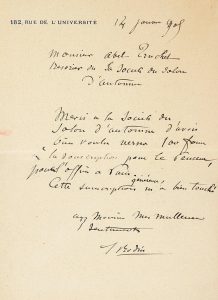 182, RUE DE L'UNIVERSITÉ
14 janvier 1905
Monsieur Abel Truchet
de la Société du Salon
d'automne
Merci à la Société du
Salon d'automne d'avoir
bien voulu verser
la souscription pour le Penseur
pour l'offrir à Paris
Cette souscription m'a bien touché
mes meilleurs
sentiments
A Rodin